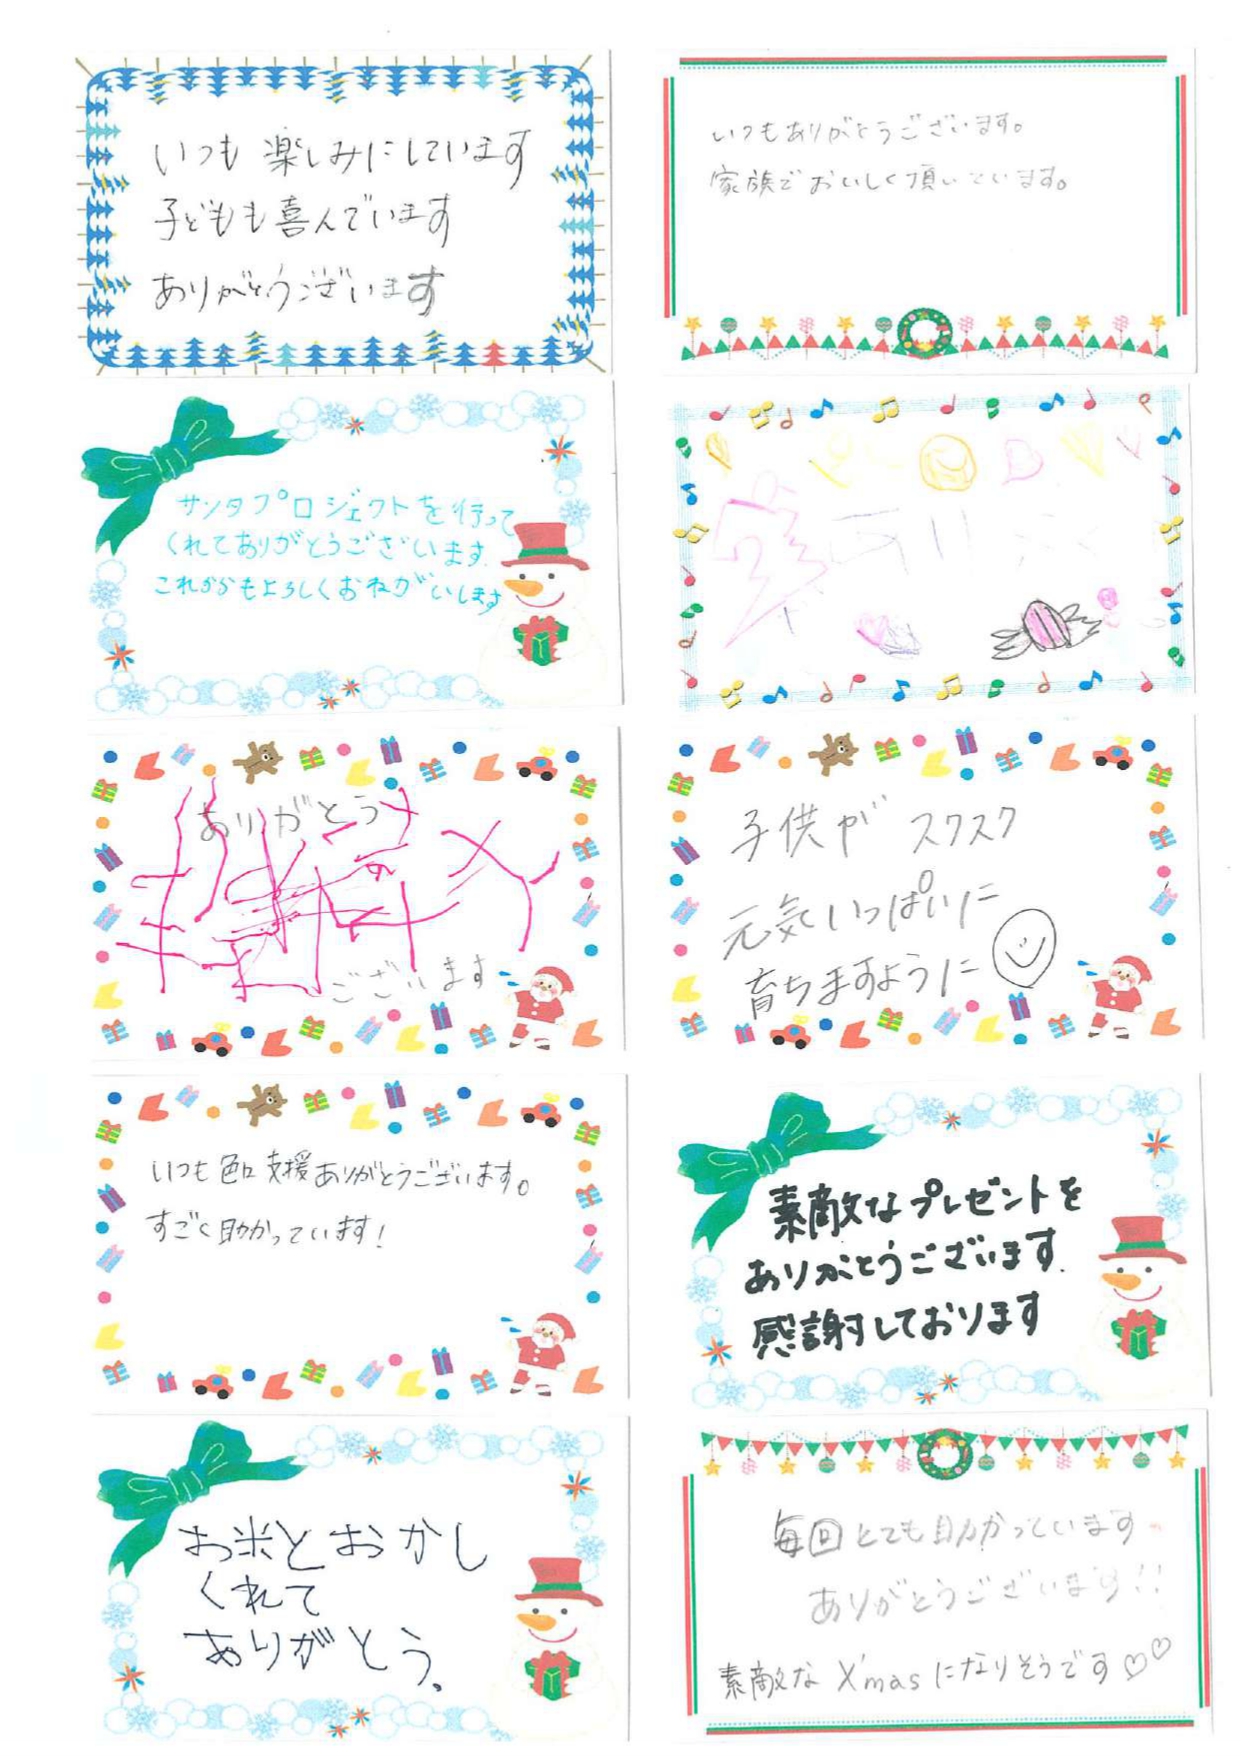 いつも楽しみにしています
子どもも喜んでいます
ありがとうございます
いつもありがとうございます。
家族でおいしく頂いています。
サンタプロジェクトを行って
くれてありがとうございます.
これからもよろしくおねがいします
ありがとう
ございます
子供が スクスク
元気いっぱいに
育ちますように
いつも色口支援ありがとうございます。
すごく助かっています!
素敵なプレゼントを
ありがとうございます.
感謝しております
お米とおかし
くれて
ありがとう、
毎回とても助かっています
ありがとうございます!!
素敵なX'masになりそうです♡♡